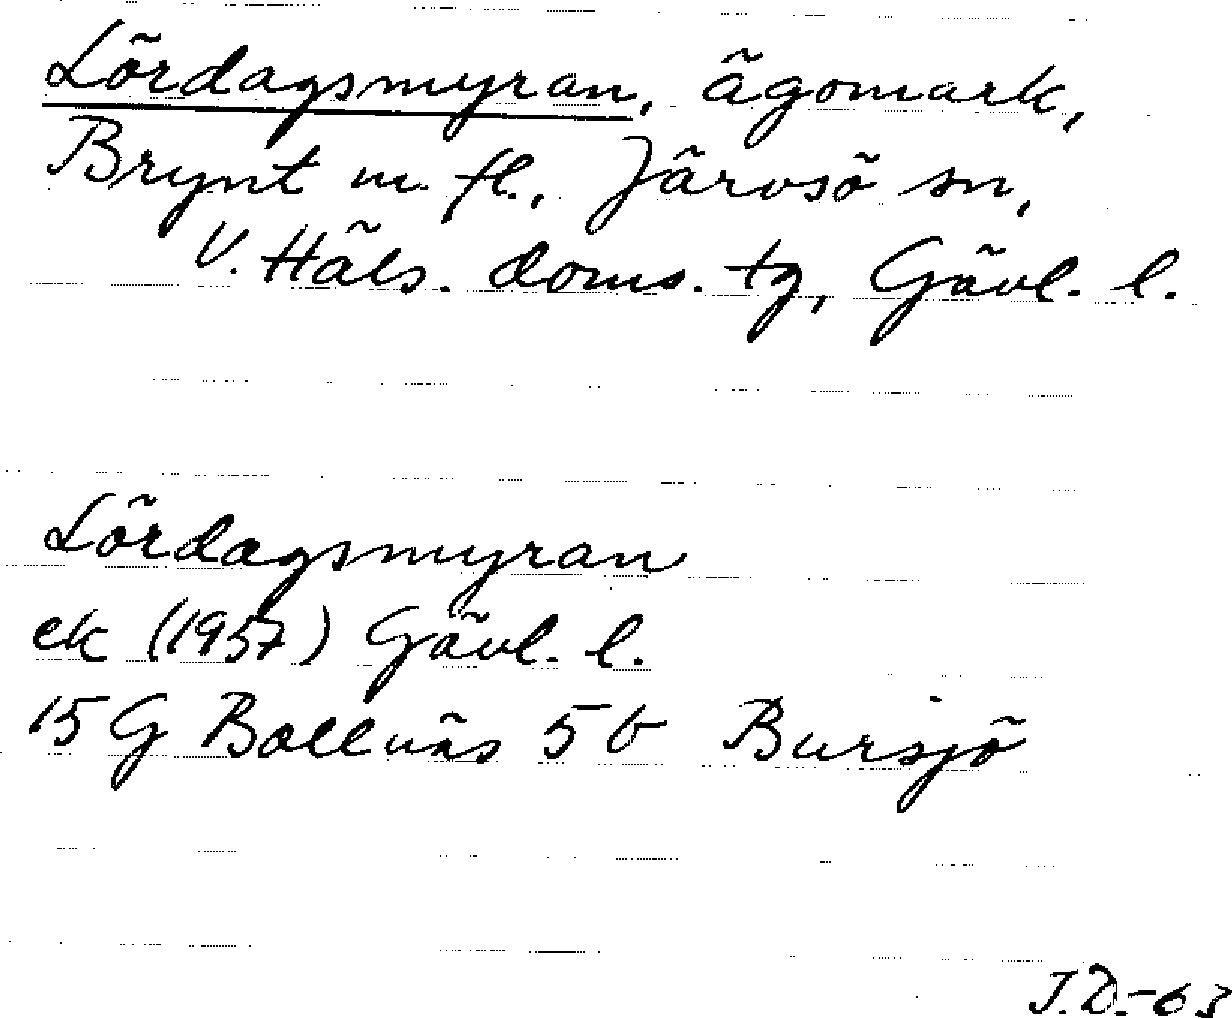 Lördagsmyran, ägomark,
Brynt m. fl., Järvsö sn,
V. Häls. doms. tg, Gävl. l.
Lördagsmyran
ek (1957) Gävl. l.
15 G Bollnäs 5 b Bursjö
J.D.-63